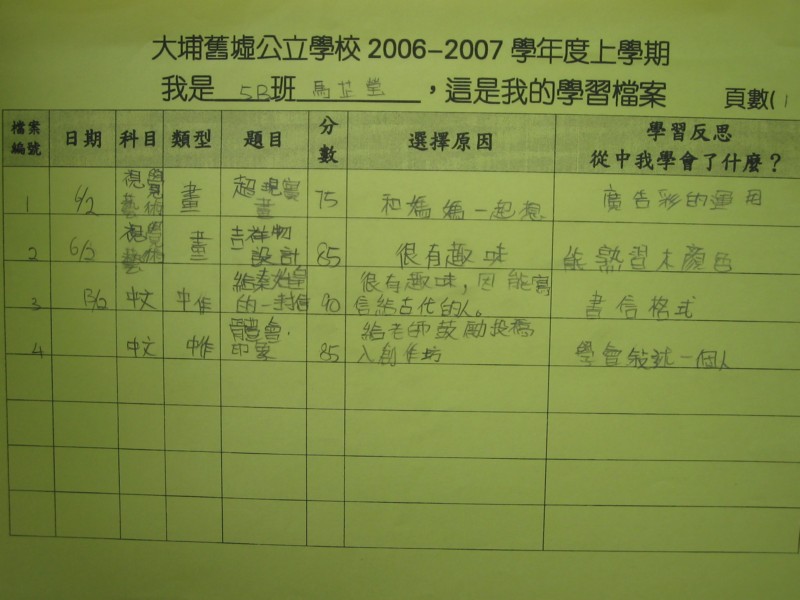 大埔舊墟公立學校 2006-2007 學年度上學期
我是 5B 班 馬芷瑩 ，這是我的學習檔案 頁數( 1
檔案編號 日期 科目 類型 題目 分數 選擇原因 學習反思 從中我學會了什麼？
1 6/2 視覺藝術 畫 超現實畫 75 和媽媽一起想 廣告彩的運用
2 6/2 視覺藝術 畫 吉祥物設計 85 很有趣味 能熟習木顏色
3 13/2 中文 中作 給秦始皇的一封信 90 很有趣味，因能寫信給古代的人。 書信格式
4 中文 中作 體會．印象 85 給老師鼓勵投稿入創作坊 學會敍述一個人